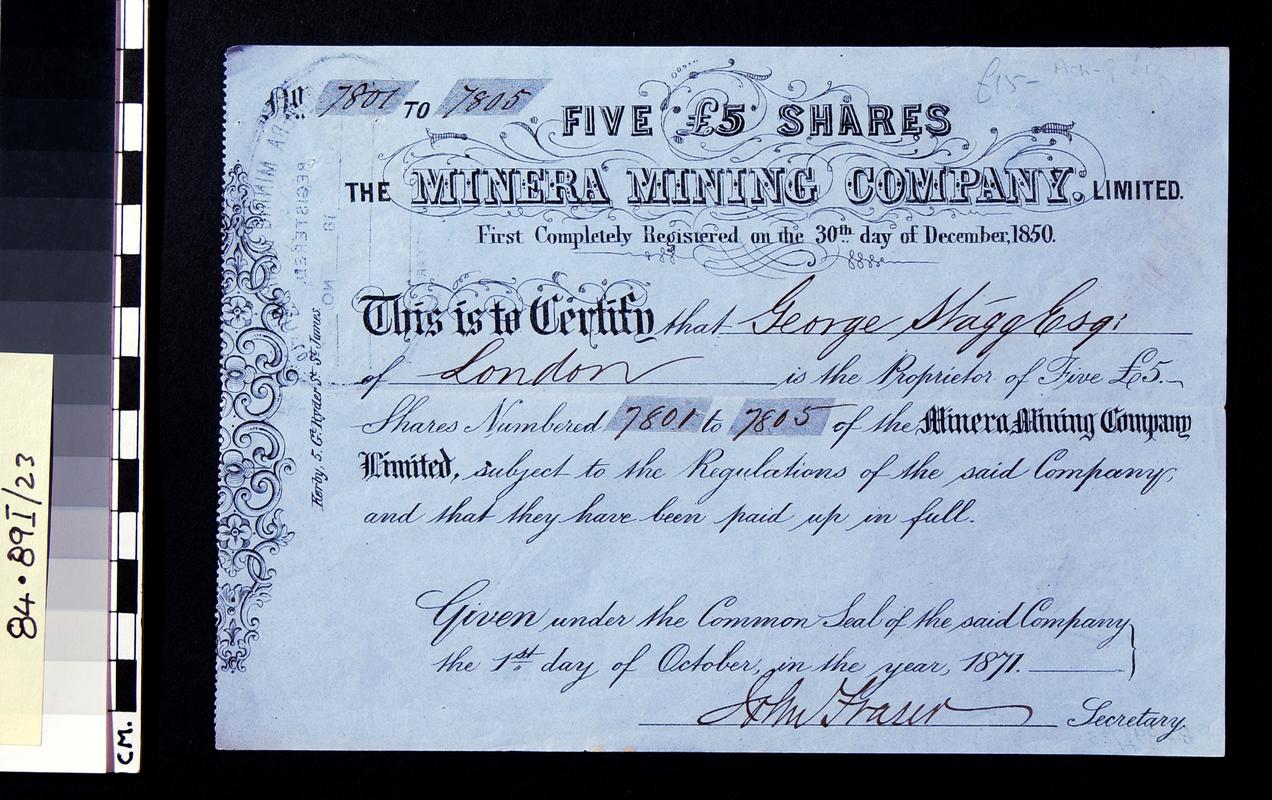 No. 7801 TO 7805
£15-
FIVE £5 SHARES
THE MINERA MINING COMPANY. LIMITED.
First Completely Registered on the 30th day of December, 1850.
This is to Certify that George Stagg Esqr
of London is the Proprietor of Five £5.
Shares Numbered 7801 to 7805 of the Minera Mining Company
Limited, subject to the Regulations of the said Company,
and that they have been paid up in full.
Given under the Common Seal of the said Company
the 1st day of October, in the year, 1871.
John Fraser Secretary.
Kerby, 5, Gt. Ryder St. St. James.
REGISTERED
NO
84.89I/23
CM.